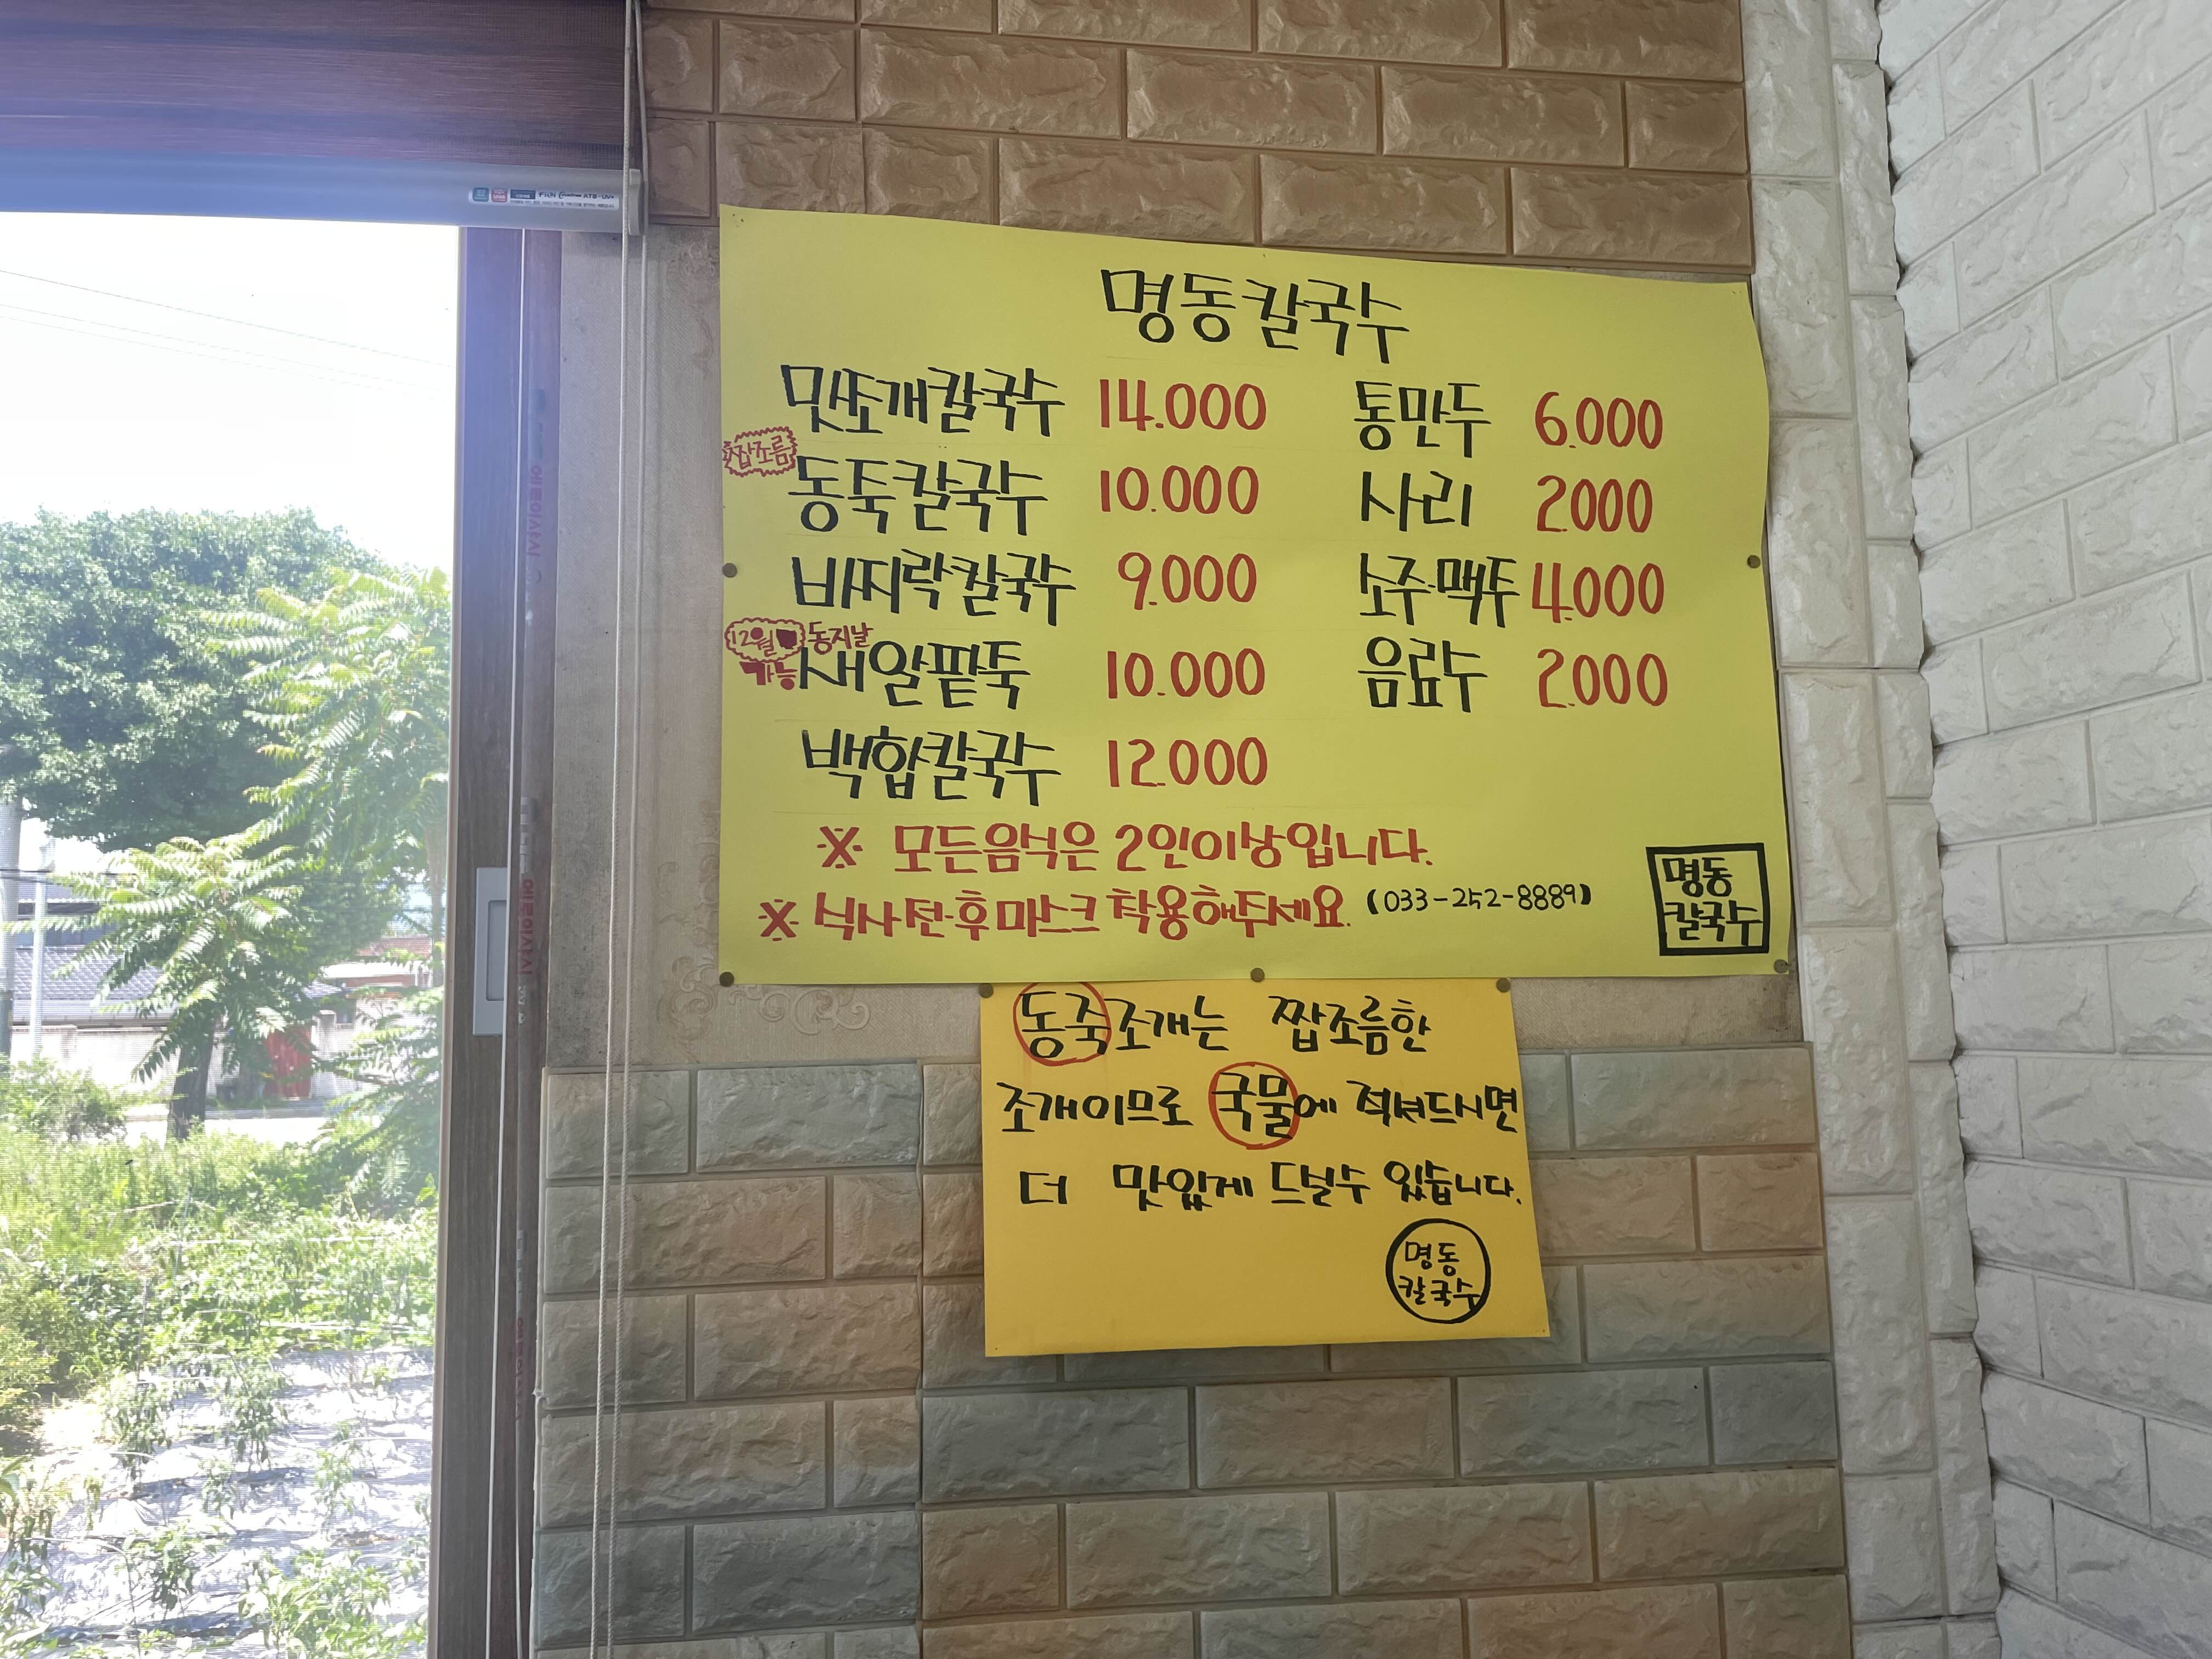 명동칼국수
맛쪼개칼국수 14.000 통만두 6.000
짭조름
동죽칼국수 10.000 사리 2.000
바지락칼국수 9.000 소주·맥주 4.000
12월 동지날
가능
새알팥죽 10.000 음료수 2.000
백합칼국수 12.000
※ 모든음식은 2인이상입니다.
※ 식사전·후 마스크 착용해주세요. (033-252-8889)
명동
칼국수
동죽조개는 짭조름한
조개이므로 국물에 적셔드시면
더 맛있게 드실수 있습니다.
명동
칼국수